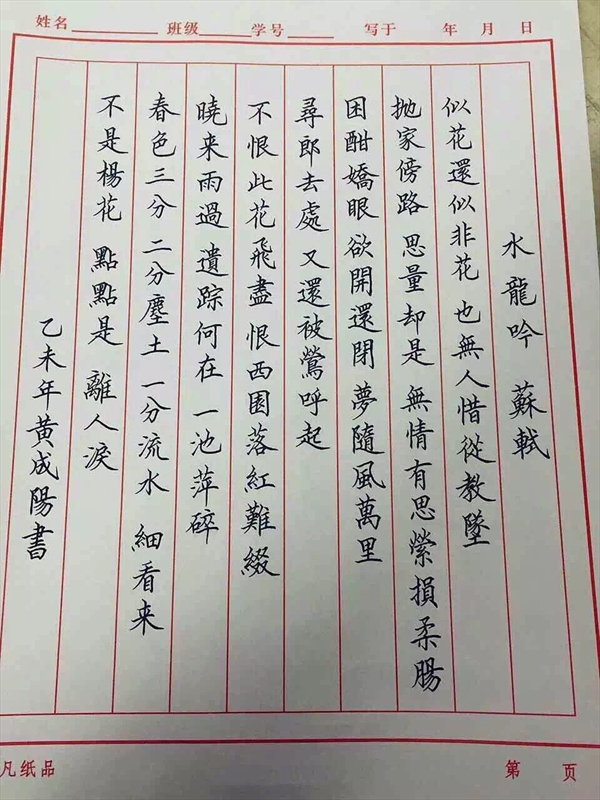 姓名 班级 学号 写于 年 月 日
水龍吟 蘇軾
似花還似非花 也無人惜從教墜
抛家傍路 思量却是 無情有思縈損柔腸
困酣嬌眼欲開還閉 夢隨風萬里
尋郎去處 又還被鶯呼起
不恨此花飛盡 恨西園落紅難綴
曉来雨過 遺踪何在 一池萍碎
春色三分 二分塵土 一分流水 細看来
不是楊花 點點是 離人淚
乙未年黄成陽書
凡纸品 第 页